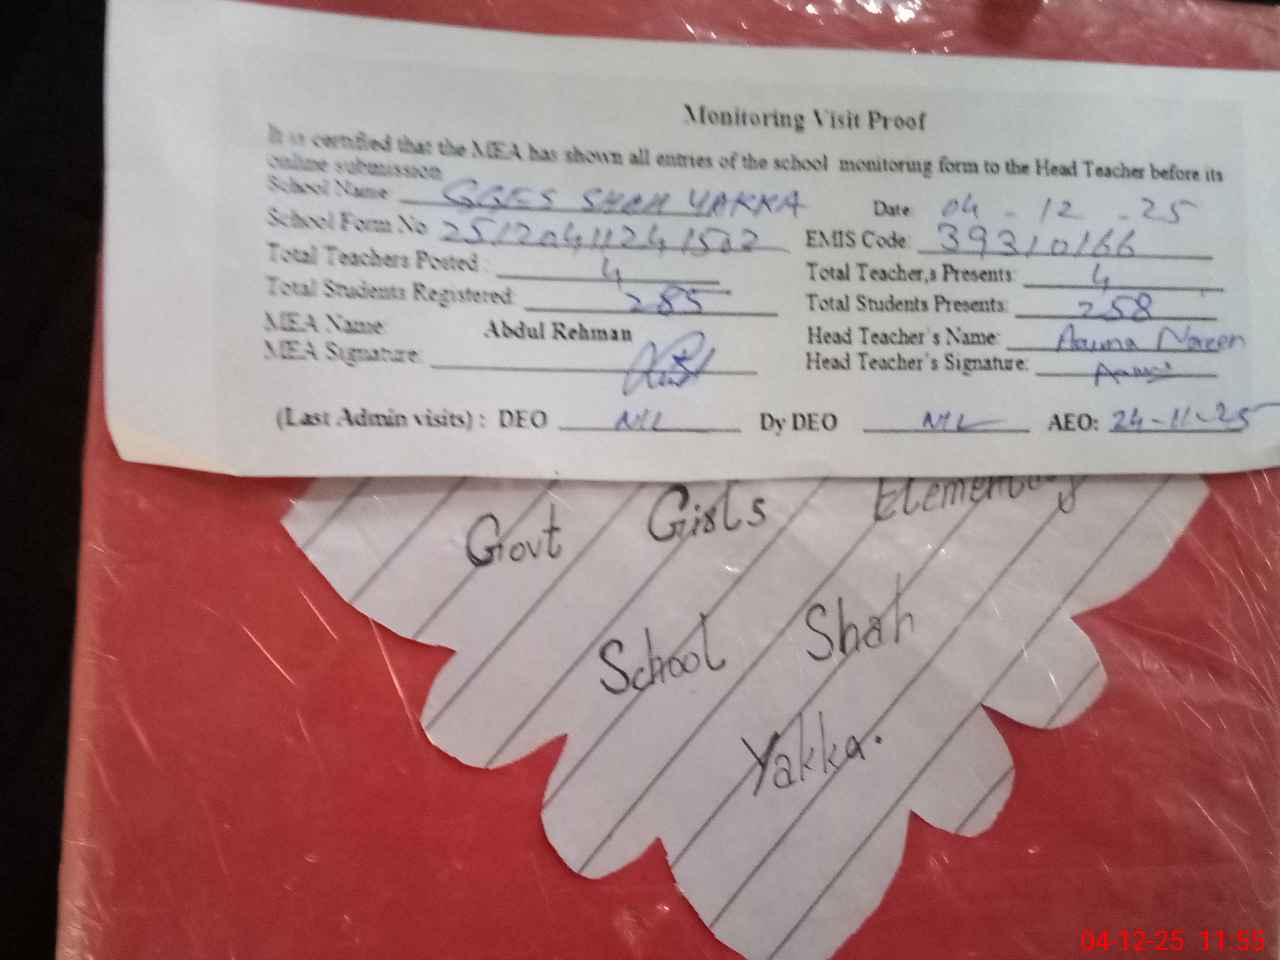 Monitoring Visit Proof
It is certified that the MEA has shown all entries of the school monitoring form to the Head Teacher before its
online submission
School Name GGES SHAH YAKKA Date 04 - 12 - 25
School Form No 2512041124 1502 EMIS Code: 39310166
Total Teachers Posted : 4 Total Teacher,s Presents: 4
Total Students Registered: 285 Total Students Presents: 258
MEA Name: Abdul Rehman Head Teacher's Name:
MEA Signature: Head Teacher's Signature:
(Last Admin visits) : DEO NIL Dy DEO NIL AEO: 24-11-25
Govt Girls Elementary
School Shah
Yakka.
04-12-25 11:55